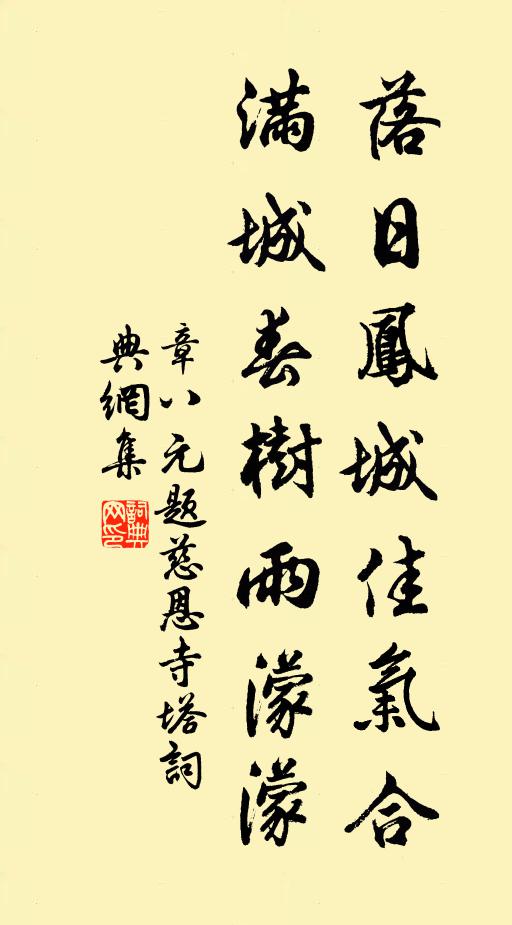 落日鳳城佳氣合
滿城春樹雨濛濛
章八元題慈恩寺塔詞
典網集
詞典网印